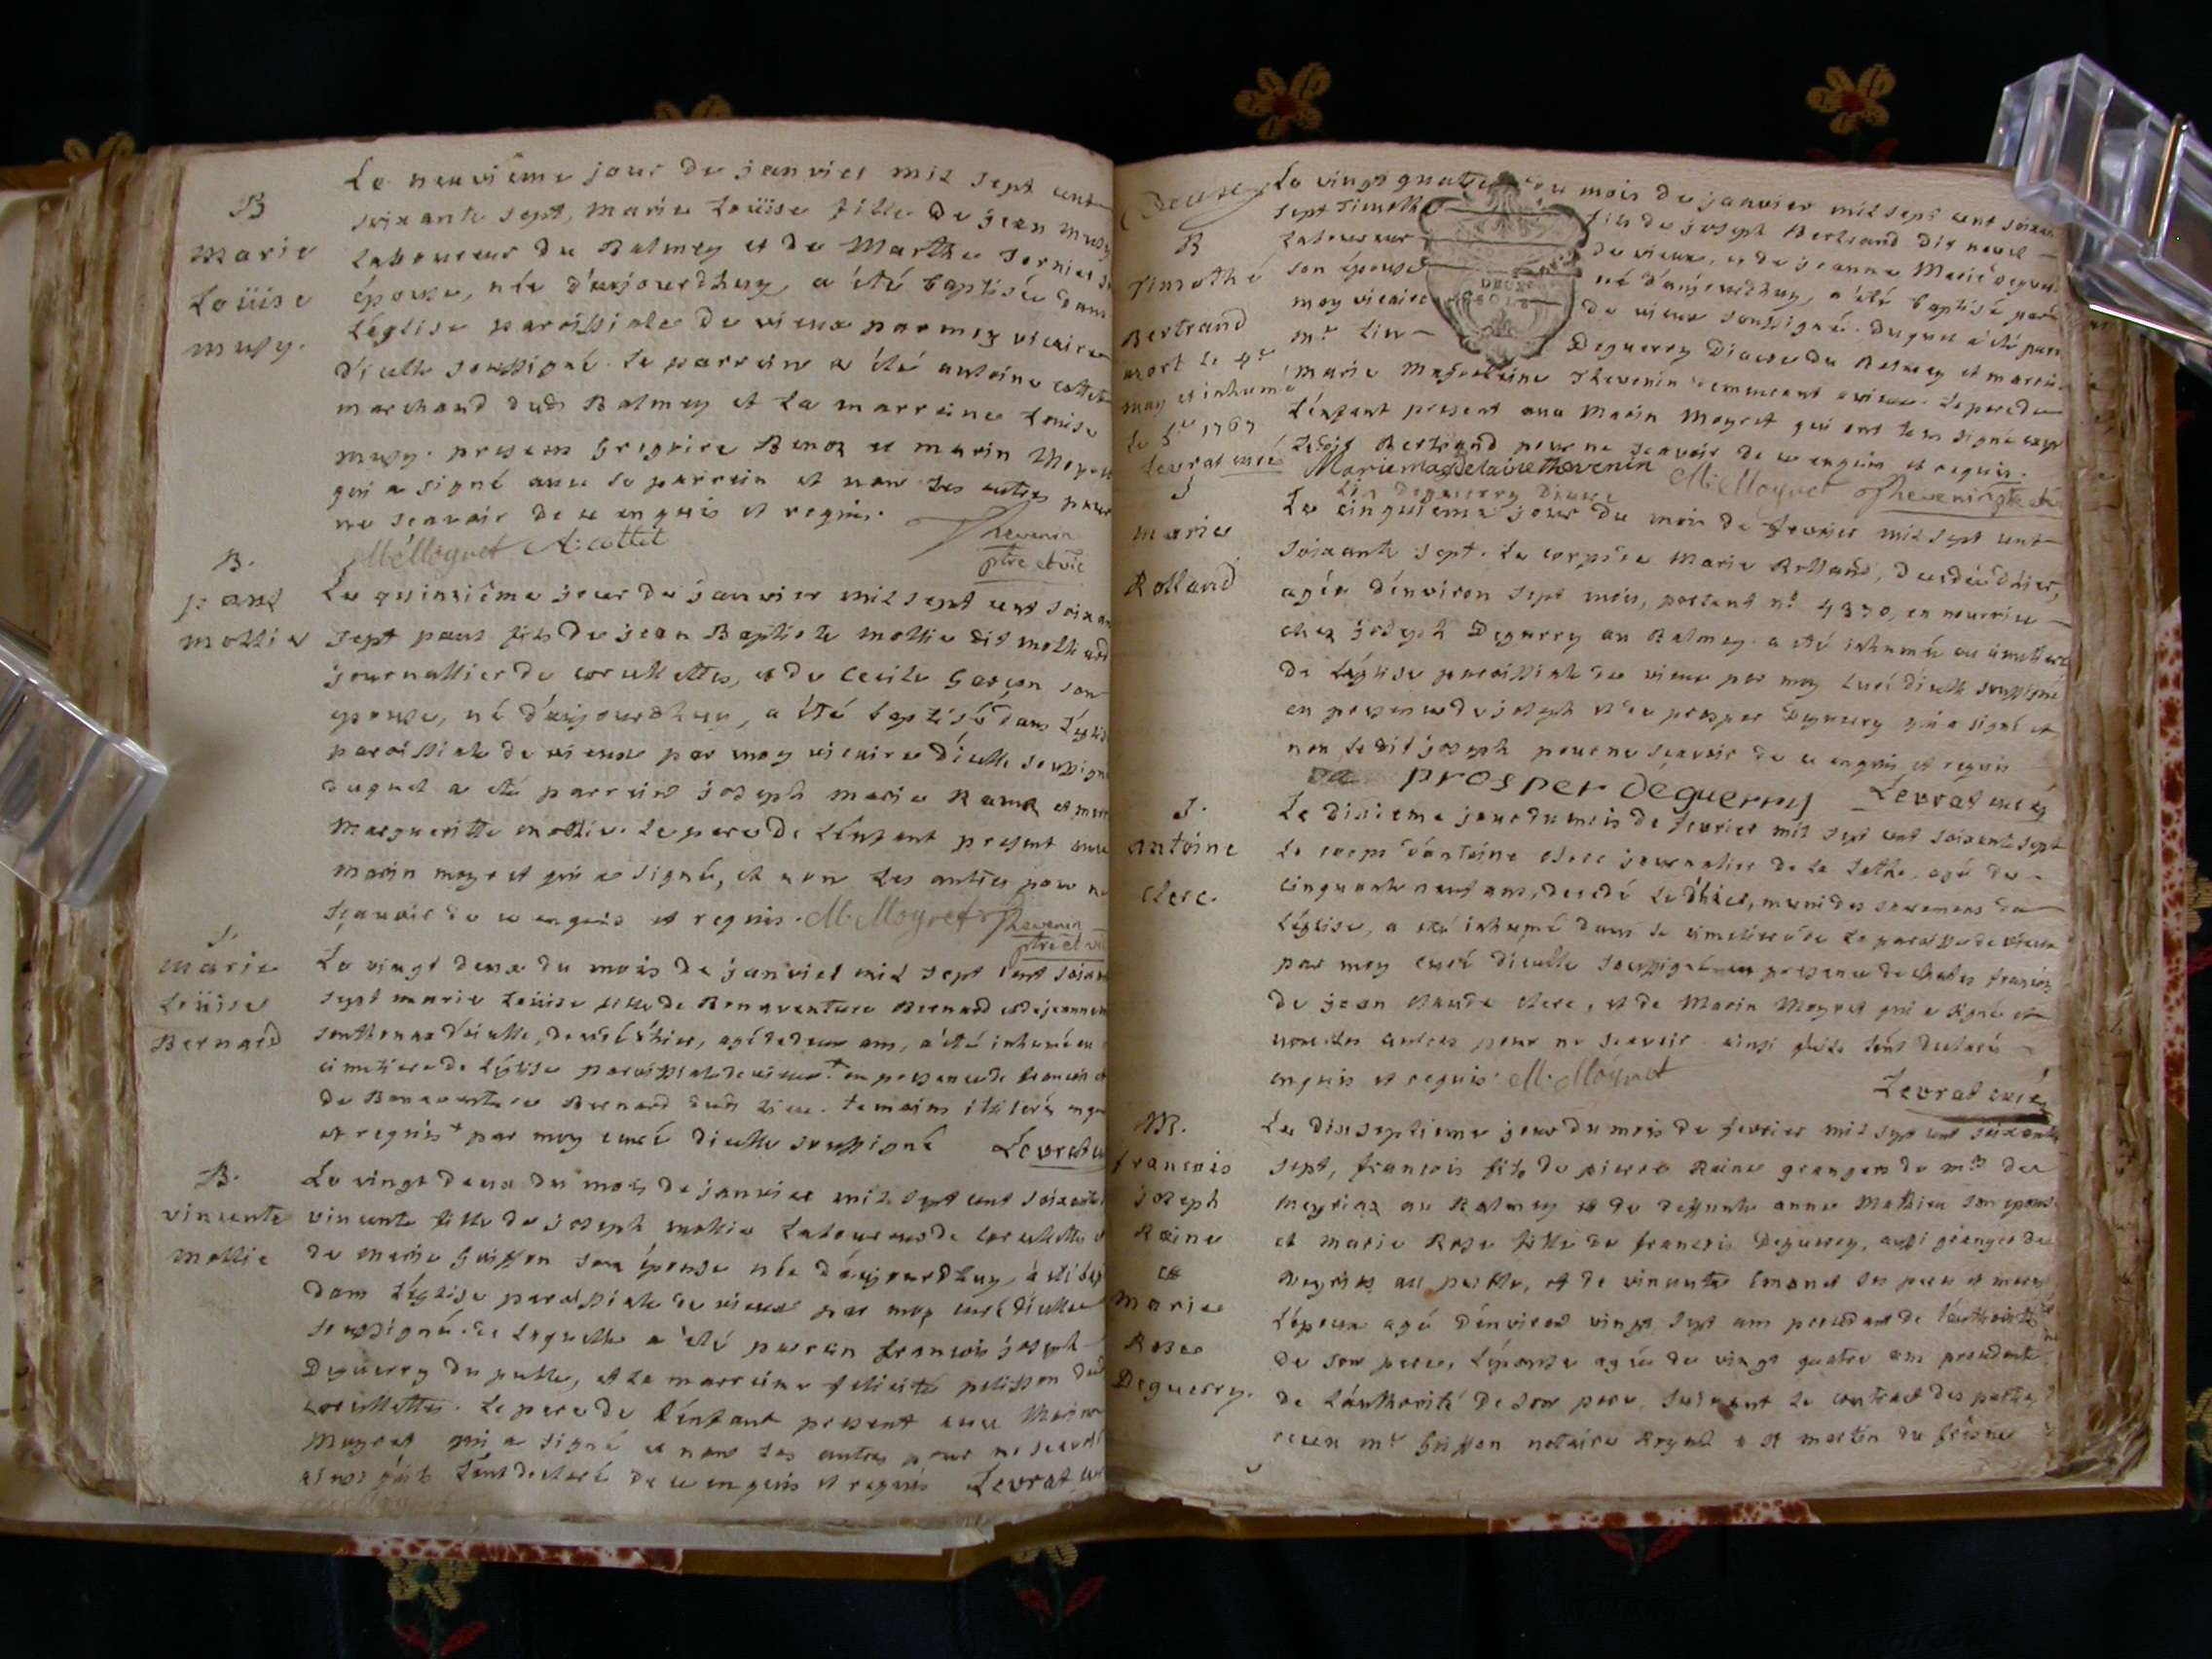 B
marie
Loüise
musy.
Le neuvième jour de janvier mil sept cent
soixante sept, marie Loüise fille de jean musy
Laboureur du Balmey et de Marthe
épouse, née d'aujourdhuy, a été baptisée dans
L'église paroissiale de vieux par moy vicaire
d'icelle soussigné. Le parrein a été antoine cottet
marchand dudt Balmey et La marreine Louise
musy. presens Gregoire et marin Moyret
qui a signé avec le parrein et non Les autres pour
ne sçavoir de ce enquis et requis.
M. Moyret A. cottet Thevenin
ptre et vic
B.
paul
mollie
Le quinzième jour de janvier mil sept cent soixante
sept paul fils de jean Baptiste mollie dit
journallier de corcelettes, et de Cecile Garçon son
epouse, né d'aujourdhuy, a été baptisé dans L'église
paroissiale de vieux par moy vicaire d'icelle soussigné
duquel a été parrein joseph marie et marr
Margueritte mollie. Le pere de L'enfant present avec
marin moyret qui a signé, et non Les autres pour ne
sçavoir de ce enquis et requis. M. Moyret Thevenin
ptre et vic
S.
marie
Loüise
Bernard
Le vingt deux du mois de janvier mil sept cent soixante
sept marie Loüise fille de Bonaventure Bernard et de jeanne
d'icelle, decedé d'hier, agée de deux ans, a été inhumée au
cimetiere de L'église paroissiale de vieux + en presence de francois et
de Bonaventure Bernard dudt Lieu. temoins illiterés enquis
et requis + par moy curé d'icelle soussigné Levrat
B.
vincente
mollie
Le vingt deux du mois de janvier mil sept cent soixante
vincente fille de joseph mollie Laboureur de Corcelettes et
de marie Griffon son épouse née d'aujourdhuy, a été bap
dans L'église paroissiale de vieux par moy curé d'icelle
soussigné. de Laquelle a été parrain francois joseph
Deguerry du puble, et La marreine felicité pelisson dudt
corcelettes. Le pere de L'enfant present avec Marin
Moyret qui a signé et non Les autres pour ne sçavoir
ainsi qu'ils L'ont declaré de ce enquis et requis Levrat
B
Timothé
Bertrand
mort le 4e
may et inhumé
le 5e 1767
Levrat curé
Le vingt quatre du mois de janvier mil sept cent soixante
sept Timothé fils de joseph Bertrand dit
Laboureur de vieux, et de jeanne Marie
son épouse né d'aujourdhuy, a été baptisé par
moy vicaire de vieux soussigné. duquel a été parr
mr. Lin Deguerry Diacre du Balmey et marreine
marie Magdeleine Thevenin demeurant a vieux. Le pere de
L'enfant present avec Marin Moyret qui ont tous signé
Ledit Bertrand pour ne sçavoir de ce enquis et requis.
Marie magdelaine thevenin M. Moyret Thevenin ptre et vic
Lin deguerry diacre
S
marie
Rolland
Le cinquième jour du mois de fevrier mil sept cent
soixante sept. Le corps de Marie Rolland, decedée d'hier,
agée d'environ sept mois, portant no. 4370, en nourrice
chez joseph Deguerry au Balmey. a été inhumée au cimetiere
de L'église paroissiale de vieux par moy curé d'icelle soussigné
en presence de joseph et de prosper Deguerry qui a signé et
non Ledit joseph pour ne sçavoir de ce enquis et requis
prosper deguerry Levrat curé
S.
antoine
clerc.
Le dixieme jour du mois de fevrier mil sept cent soixante sept
Le corps d'antoine clerc journalier de La , agé de
cinquante neuf ans, decedé Le d'hier, muni des sacremens de
L'église, a été inhumé dans le cimetiere de La paroisse de vieux
par moy curé d'icelle soussigné en presence de
de jean claude clerc, et de Marin Moyret qui a signé et
non Les autres pour ne sçavoir ainsi qu'ils L'ont declaré
enquis et requis. M. Moyret
Levrat curé
M.
francois
joseph
Raine
et
Marie
Rose
Deguerry.
Le dixseptieme jour du mois de fevrier mil sept cent soixante
sept, francois fils de pierre Raine granger de mr de
meyriaz au Balmey et de deffunte anne Mathieu son epouse
et marie Rose fille de francois Deguerry, aussi granger de
au puble, et de vincente ses pere et mere
L'époux agé d'environ vingt sept ans procedant de L'authorité
de son pere, L'épouse agée de vingt quatre ans procedante
de L'authorité de son pere, suivant Le contract des parties
receu mr Griffon notaire Royal a st martin du frêsne